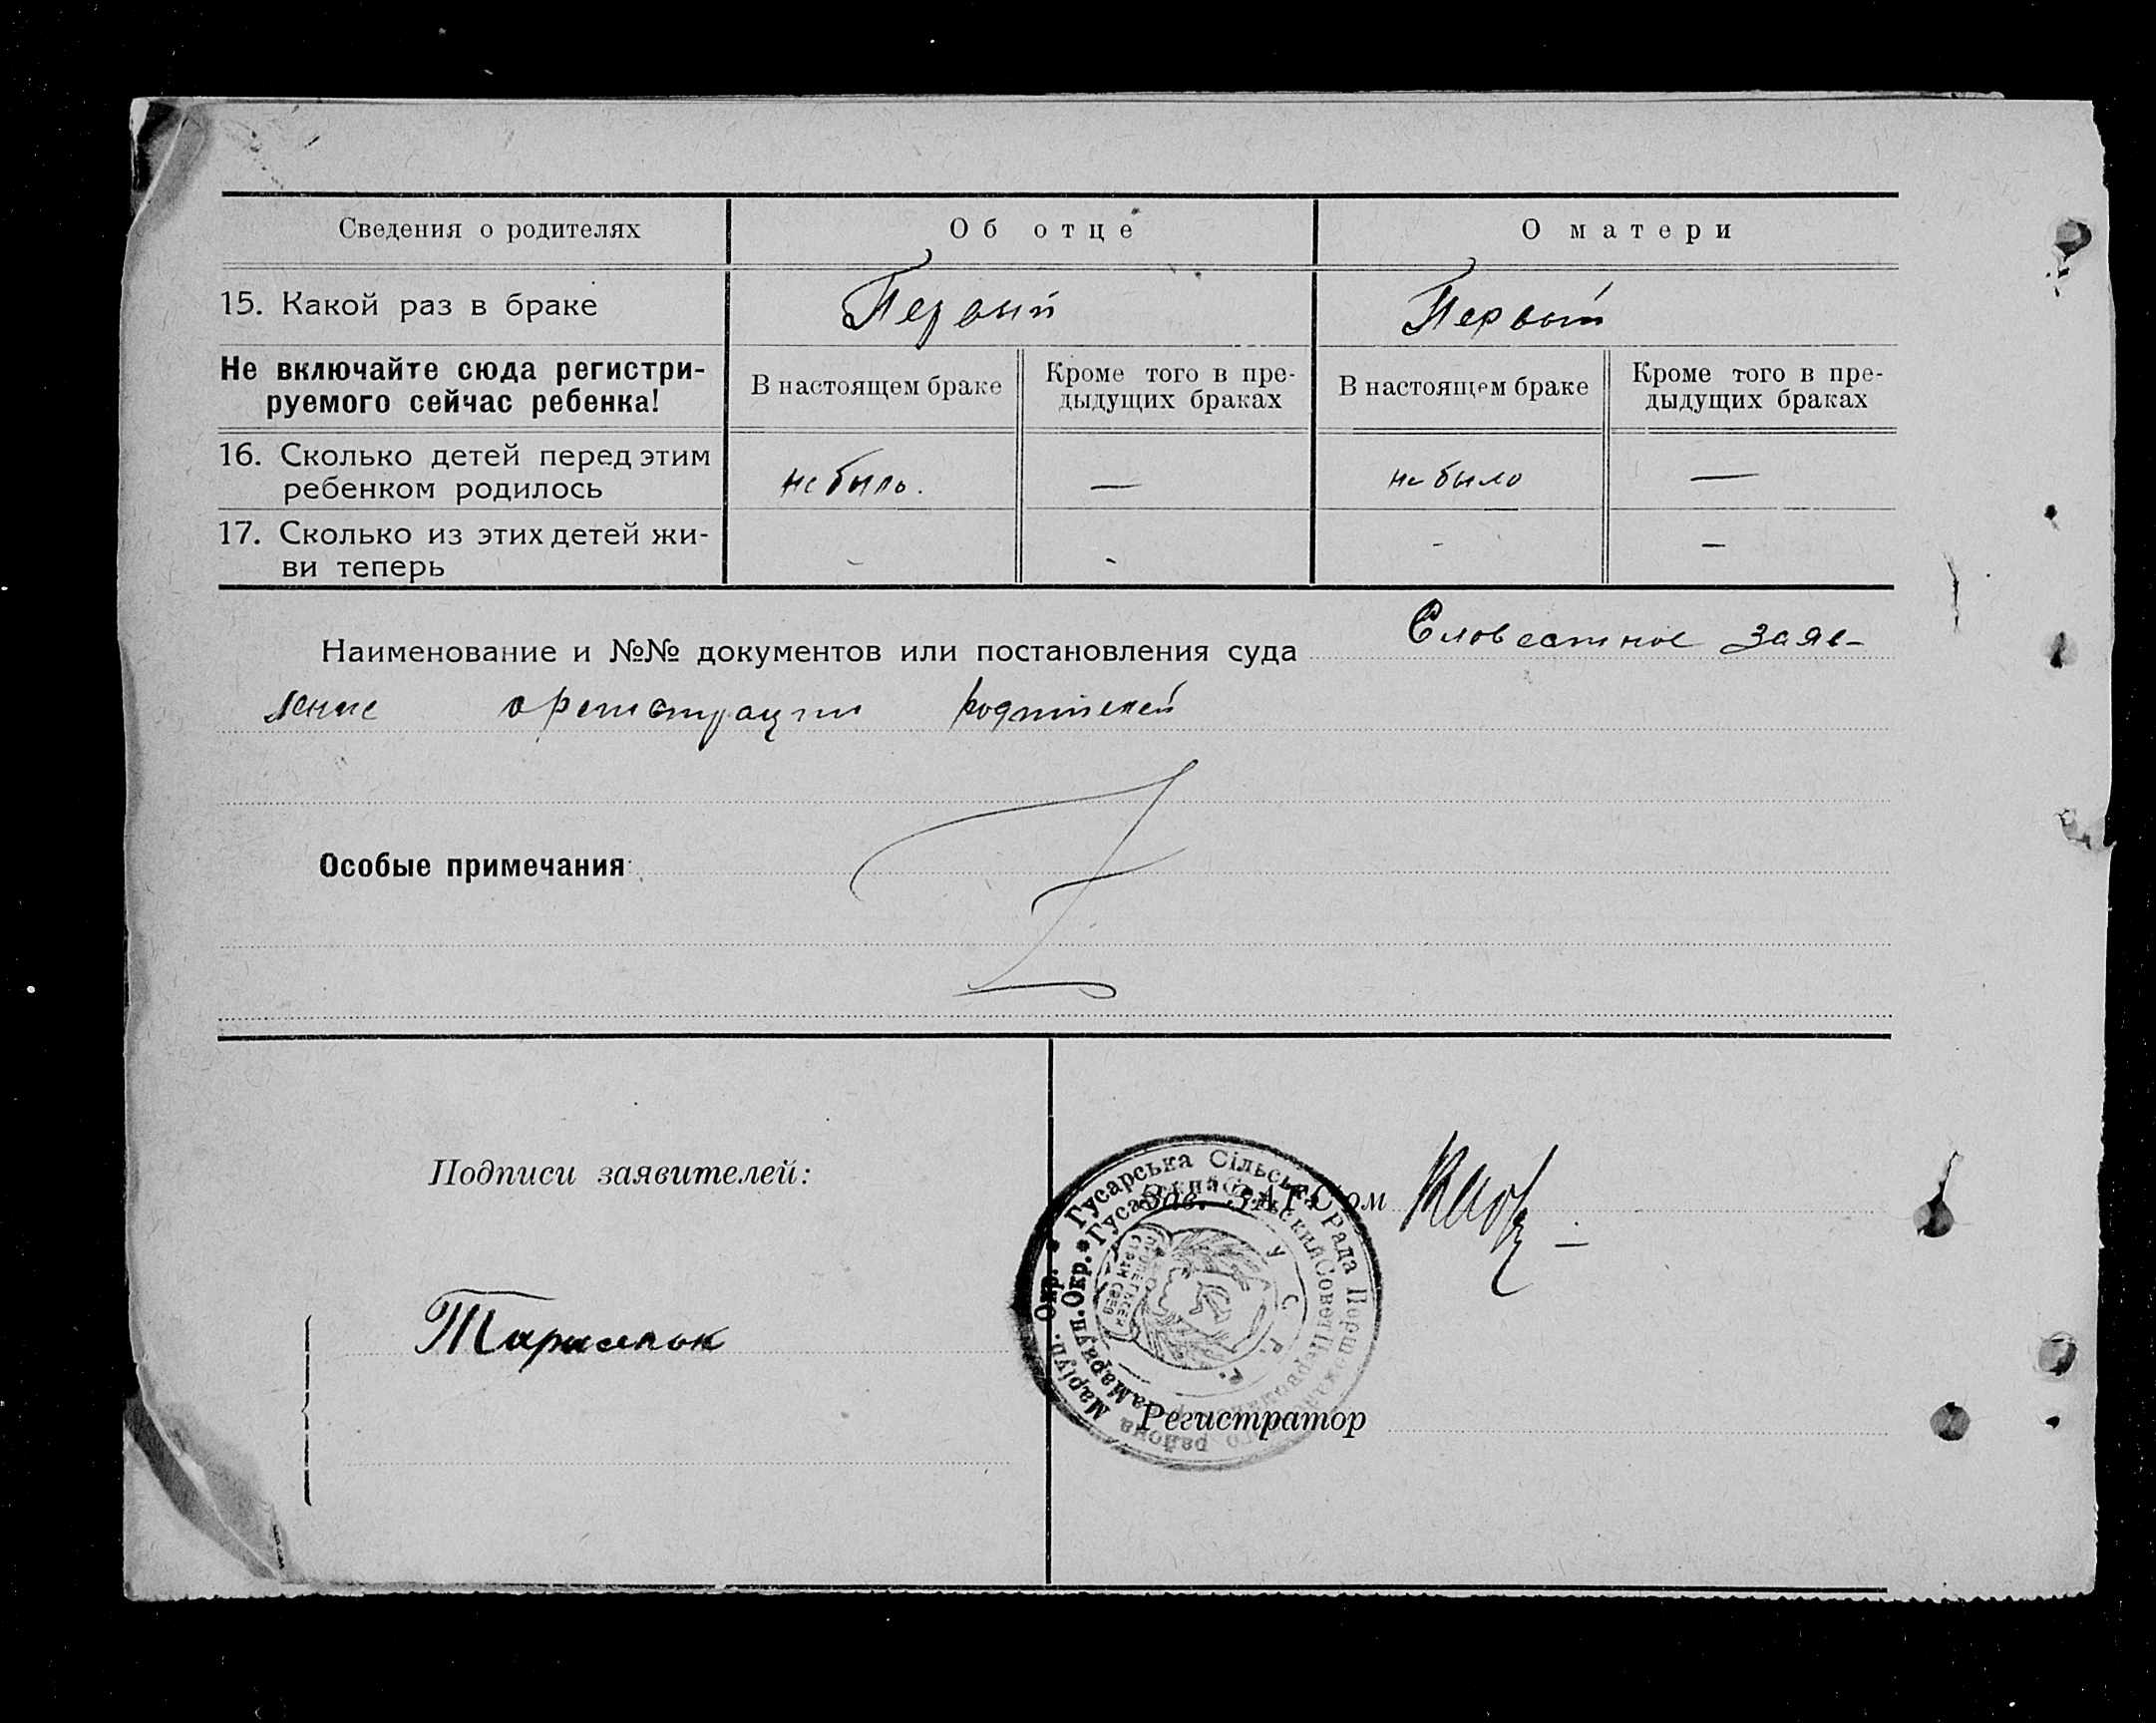 Сведения о родителях
Об отце
О матери
15. Какой раз в браке
Первый
Первый
Не включайте сюда регистри-
руемого сейчас ребенка!
В настоящем браке
Кроме того в пре-
дыдущих браках
В настоящем браке
Кроме того в пре-
дыдущих браках
16. Сколько детей перед этим
ребенком родилось
не было.
—
не было
—
17. Сколько из этих детей жи-
ви теперь
-
-
-
—
Наименование и №№ документов или постановления суда Словестное заяв-
ление о регистрации родителей
Особые примечания:
Подписи заявителей:
Зав. ЗАГС'ом
Гусарська Сільська Рада
Маріуп. Окр.
Мариуп. Окр.
района
У. С. Р. Р.
Регистратор